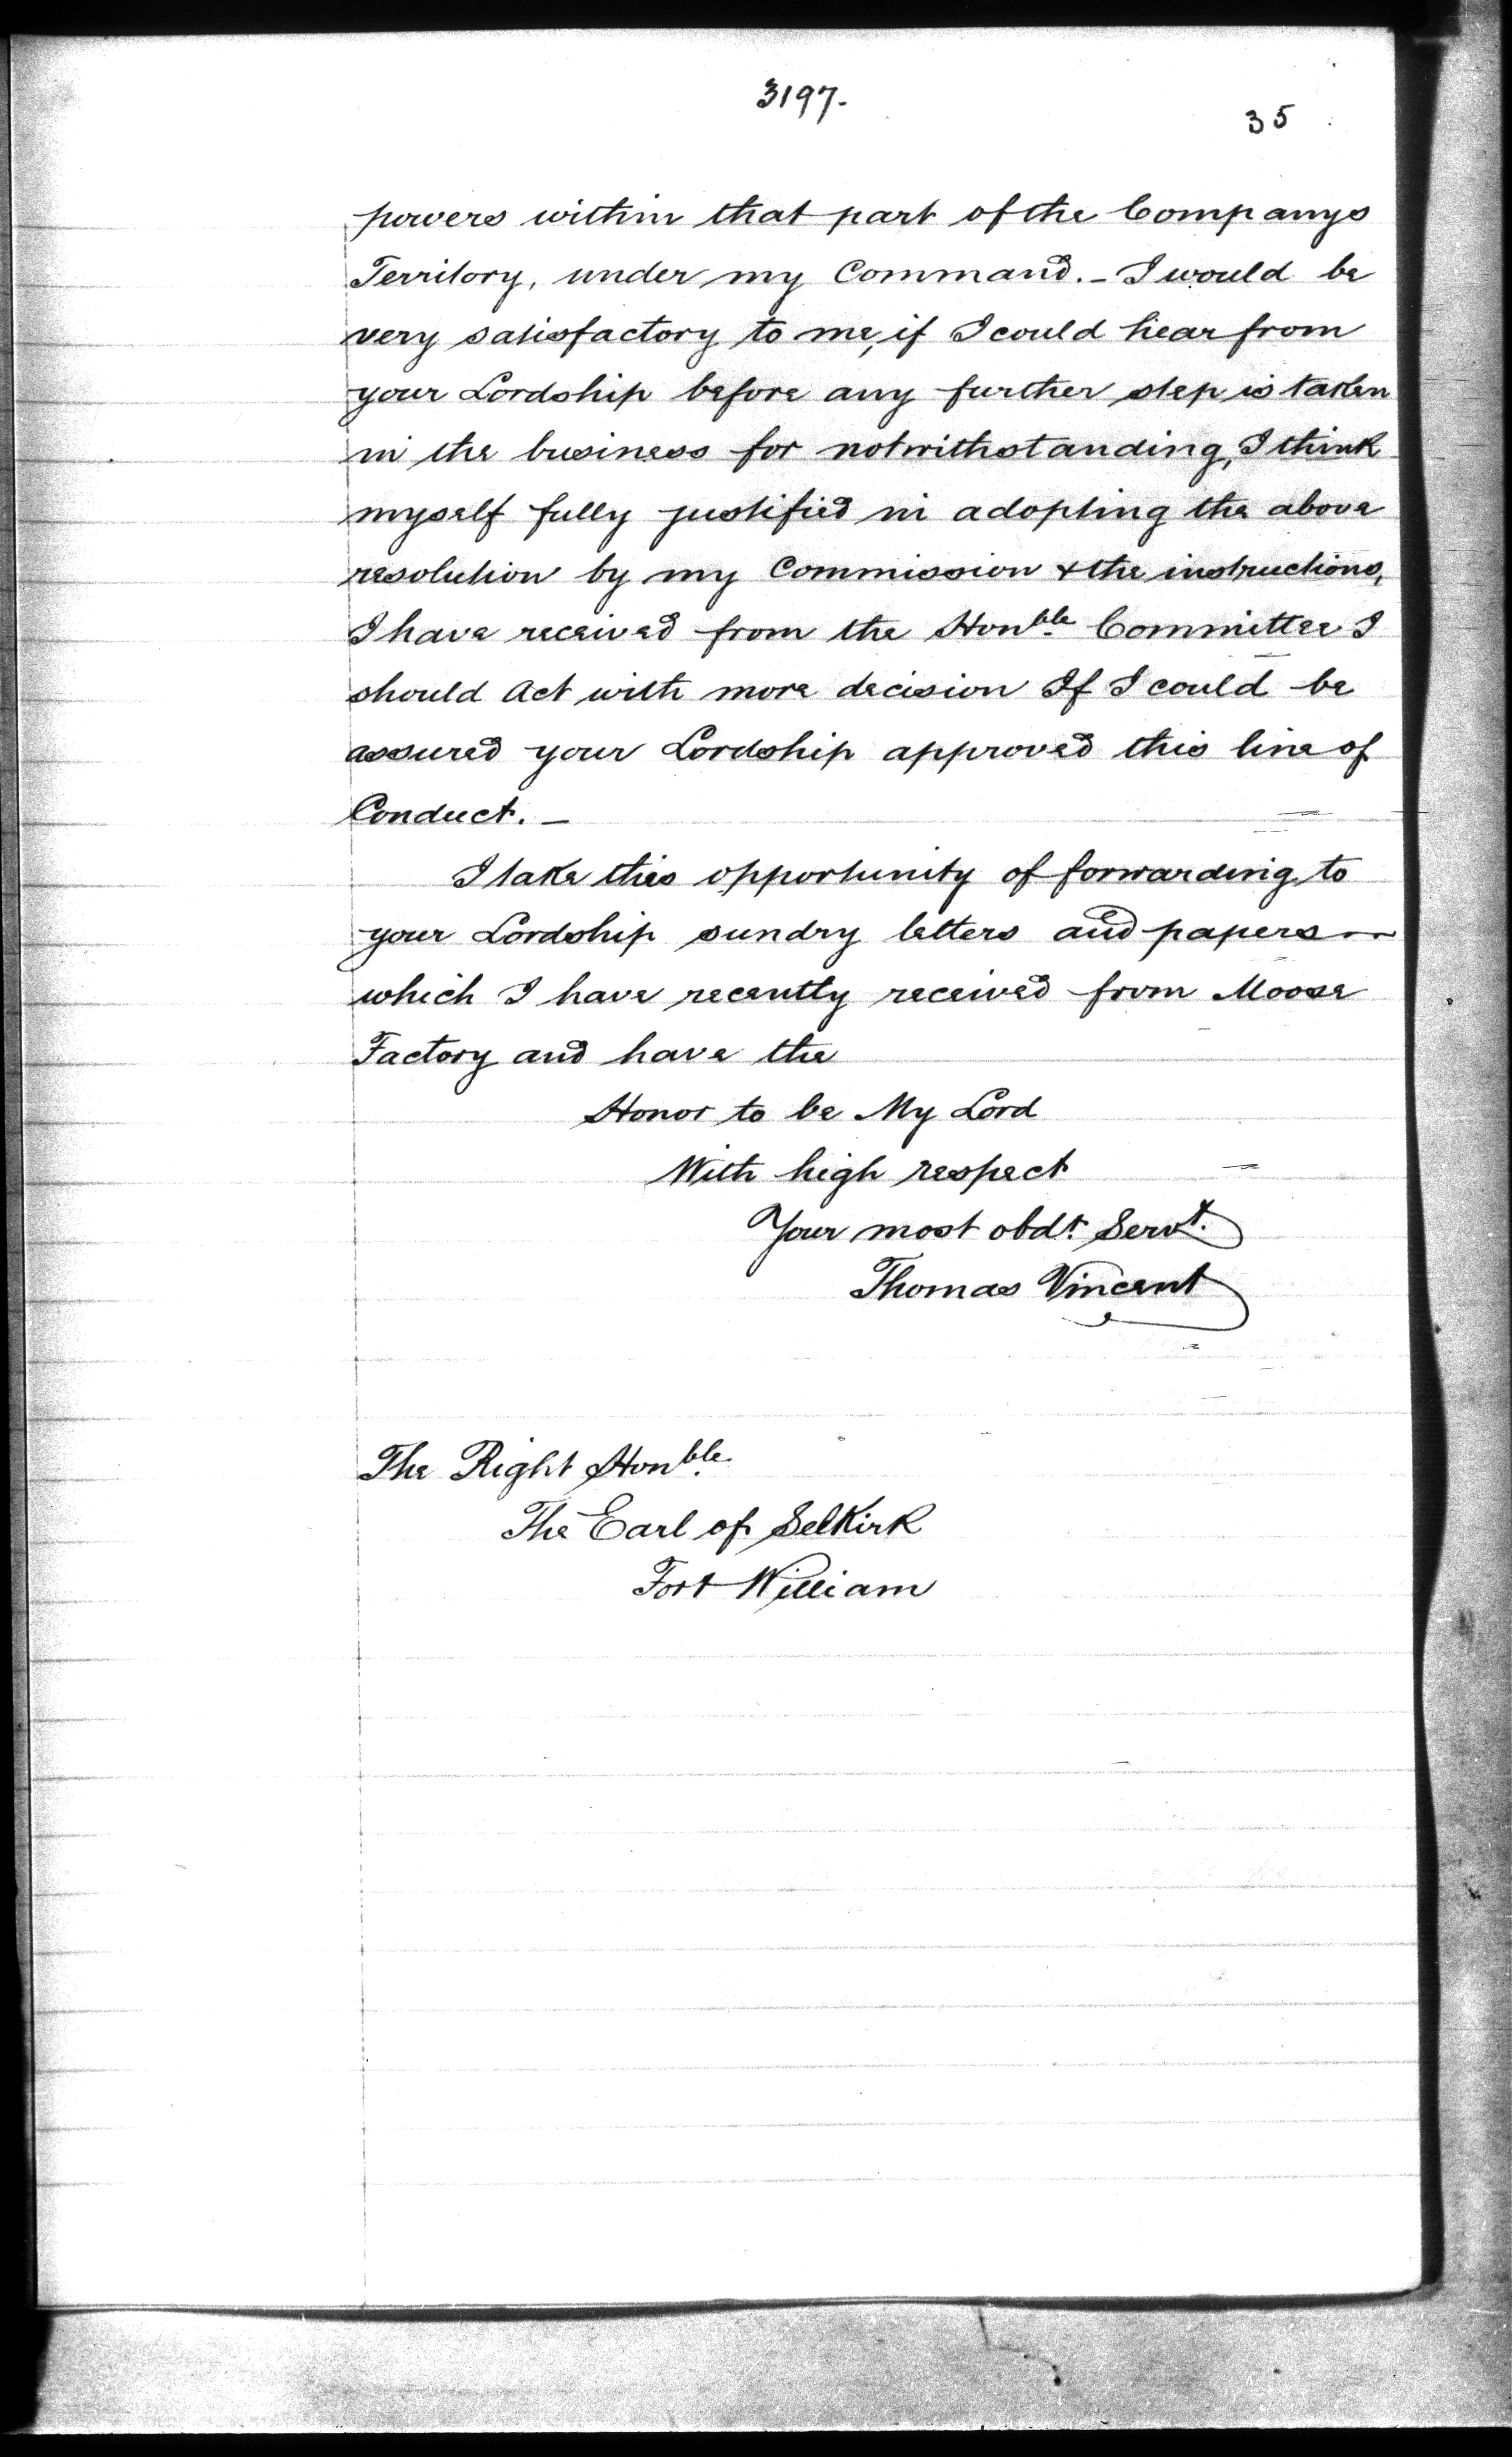 3197.
35
powers within that part of the Companys
Territory, under my Command. - I would be
very satisfactory to me, if I could hear from
your Lordship before any further step is taken
in the business for notwithstanding, I think
myself fully justified in adopting the above
resolution by my Commission & the instructions,
I have received from the Honble Committee I
should Act with more decision If I could be
assured your Lordship approved this line of
Conduct. -
I take this opportunity of forwarding to
your Lordship sundry letters and papers
which I have recently received from Moose
Factory and have the
Honor to be My Lord
With high respect
Your most obdt Servt.
Thomas Vincent
The Right Honble.
The Earl of Selkirk
Fort William